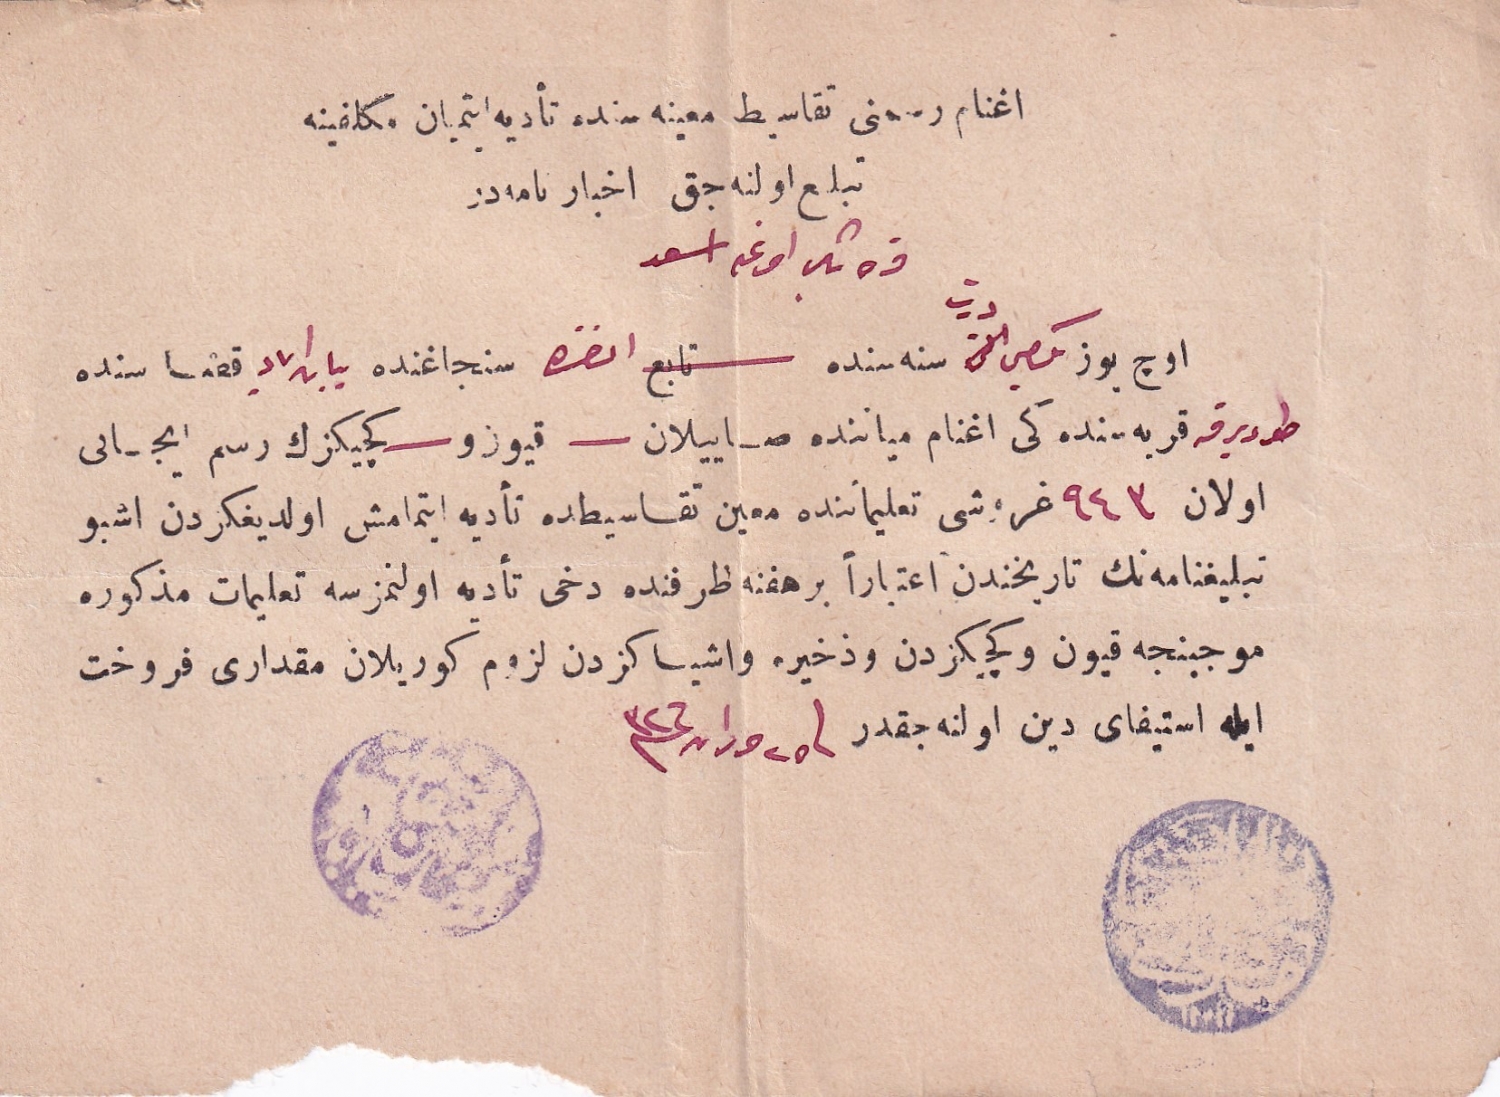 اغنام رسمنی تقاسیط معینه سنده تأدیه ایتمیان مکلفینه
تبلیغ اولنه جق اخبار نامه در
قره اوغلی اسعد
اوچ یوز یکرمی سنه سنده تابع انقره سنجاغنده بابان اباد قضا سنده
قریه سنده کی اغنام میاننده صاییلان قیوز و کچیکزك رسم ایجابی
اولان ٩٤٣ غروشی تعلیماتنده معین تقاسیطده تأدیه ایتمامش اولدیغکزدن اشبو
تبلیغنامه نك تاریخندن اعتباراً بر هفته ظرفنده دخی تأدیه اولنمز سه تعلیمات مذکوره
موجبنجه قیون و کچیکزدن وذخیره واشیا کزدن لزوم کوریلان مقداری فروخت
ایله استیفای دین اولنه جقدر حزیران ٣٢٤